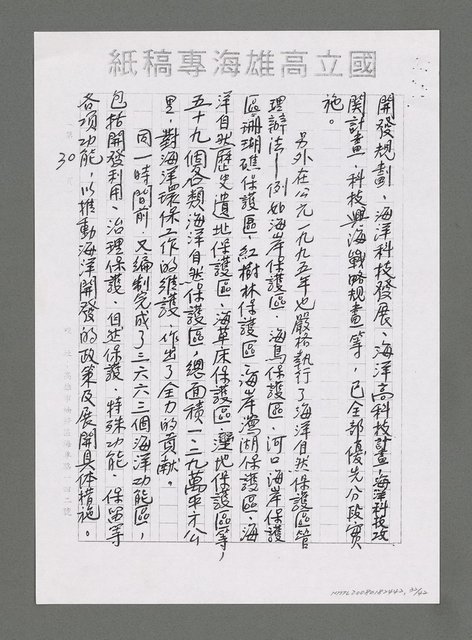 國立高雄海專稿紙
開發規劃、海洋科技發展、海洋高科技計畫、海洋科技攻
関計畫、科技興海戰略規畫等，已全部優先分段實
施。
另外在公元一九九五年也嚴格執行了海洋自然保護區管
理辦法—例如海岸保護區、海島保護區、河口海岸保護
區、珊瑚礁保護區、紅樹林保護區、海岸瀉湖保護區、海
洋自然歷史遺地保護區、海草床保護區、溼地保護區等，
五十九個各類海洋自然保護區，總面積一·二九萬平方公
里，對海洋環保工作的維護，作出了全力的貢献。
同一時間前，又編制完成了三六六三個海洋功能區，
包括開發利用、治理保護、自然保護、特殊功能、保留等
各項功能，以推動海洋開發的政策及展開具体措施。
30
NMTL20080182442, 32/42